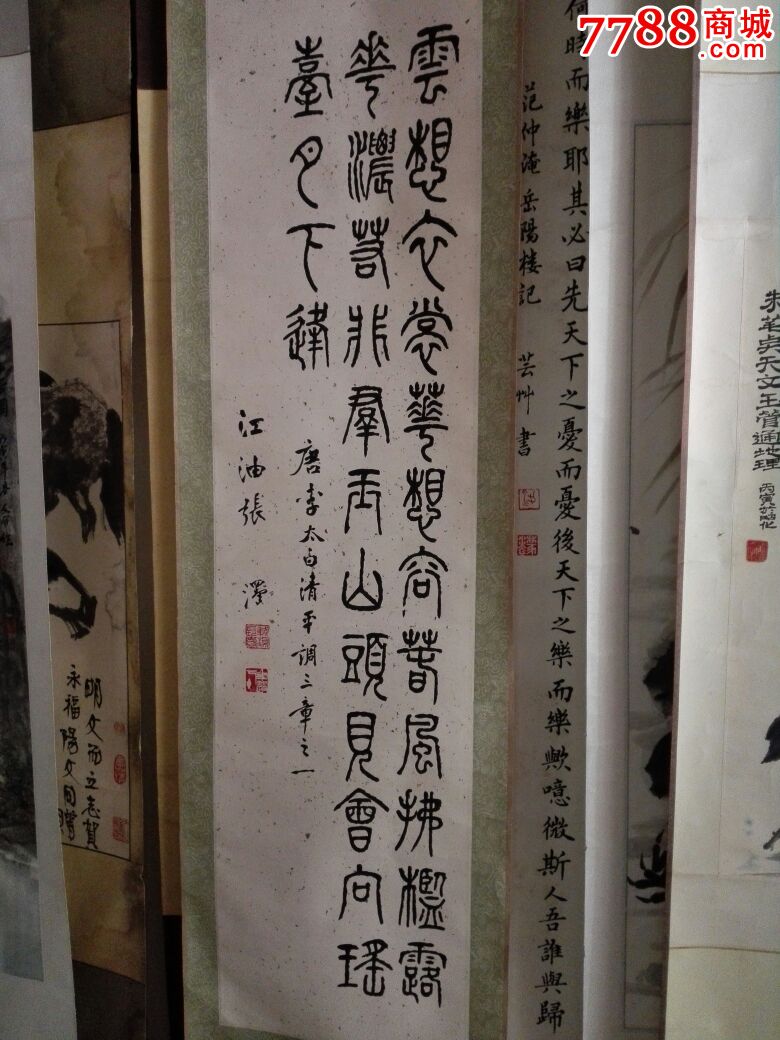 7788商城
.com
雲想衣裳華想容春風拂檻露
華濃若非羣玉山頭見會向瑤
臺月下逢
唐李太白清平調三章之一
江油張
何時而樂耶其必曰先天下之憂而憂後天下之樂而樂歟噫微斯人吾誰與歸
范仲淹岳陽楼記 芸艸書
天文王管通地理
丙寅於昭化
明文而立志賀
永福陽文同贈